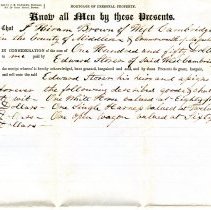 MORTGAGE OF PERSONAL PROPERTY.
Know all Men by these Presents,
That I Hiram Brown of West Cambridge
County of Middlesex & Commonwealth of
IN CONSIDERATION of the sum of One Hundred and fifty Dollars
to me paid by Edward Storer of said West Cambridge
the receipt whereof is hereby acknowledged, have granted, bargained and sold, and by these Presents do grant, bargain,
and sell unto the said Edward Storer his heirs and assigns
forever the following described goods & chattels
to wit - One White Horse valued at Eighty five
Dollars - One Single Harness valued at Twelve
Dollars - One open wagon valued at Fifty
Dollars